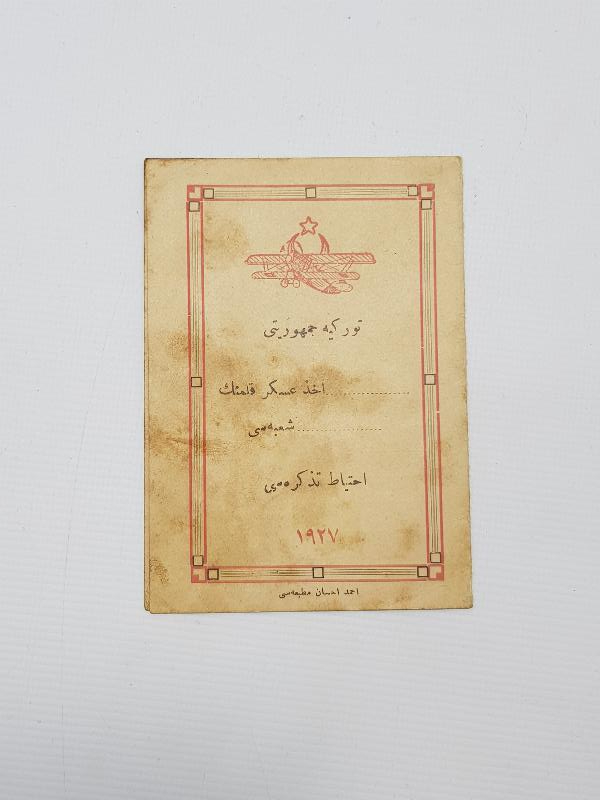 توركيه جمهوريتى
................اخذ عسكر قلمنك
................شعبه‌سى
احتياط تذكره‌سى
١٩٢٧
احمد احسان مطبعه‌سى